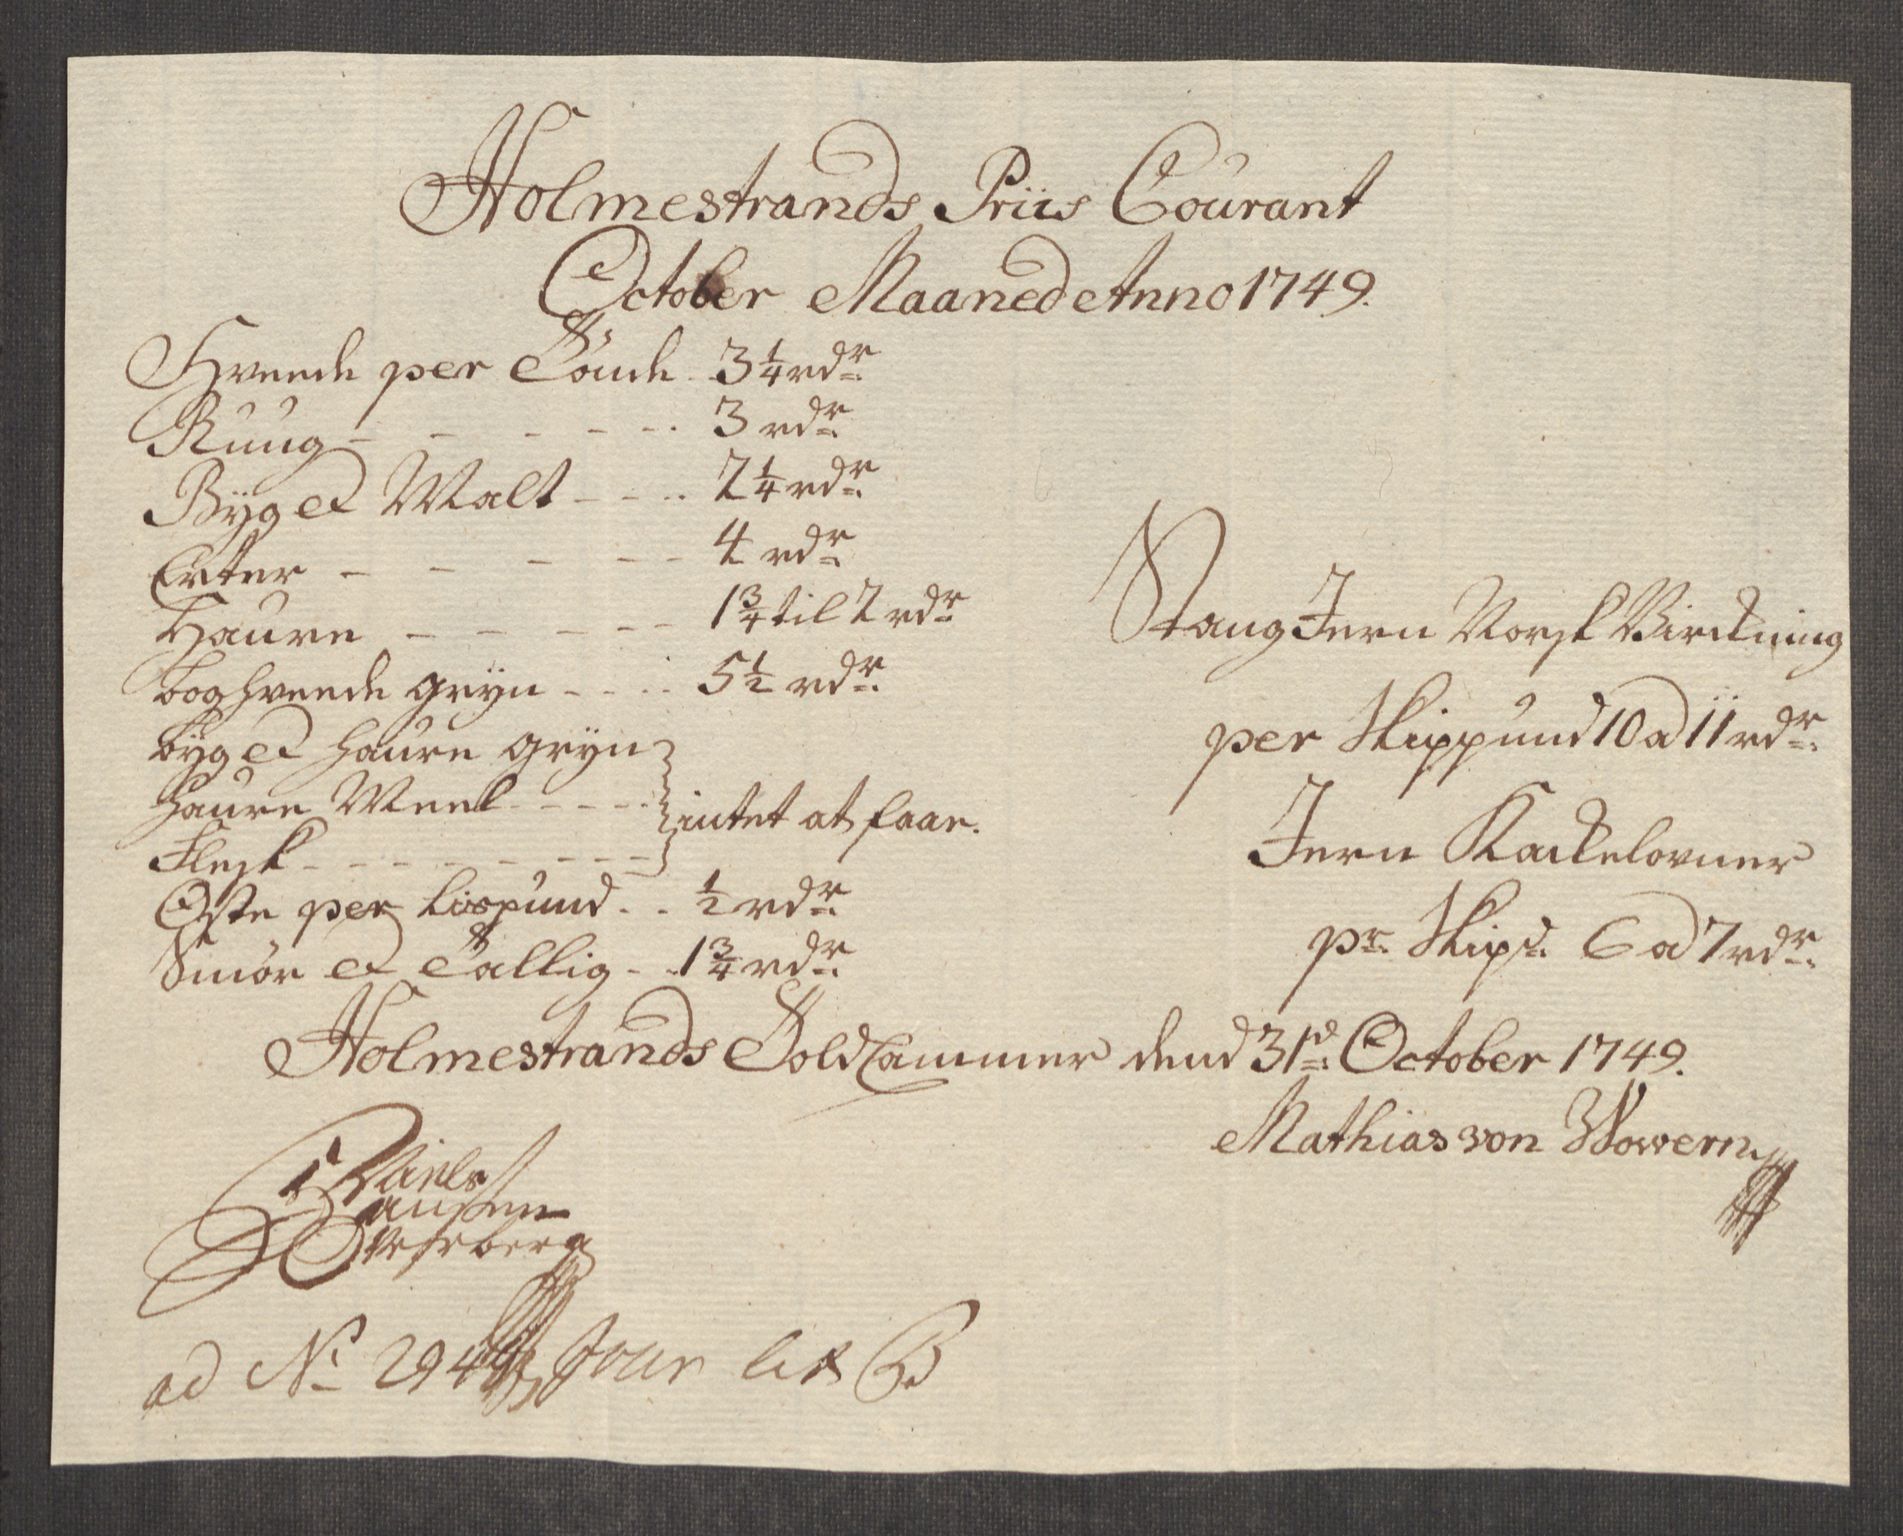 Holmestrands Priis Courant
October Maaned Anno 1749.
Hveede per Tönde - 3 1/4 rdr.
Ruug - - - - - - 3 rdr.
Byg et Malt - - - - 2 1/4 rdr.
Erter - - - - - - 4 rdr.
Haure - - - - - 1 3/4 til 2 rdr.
boghveede gryn - - - - 5 1/2 rdr.
byg et haure gryn
haure Meel - - - - -
intet at faae.
Flesk - - - - - - - - -
Oste per Lispund - - 1/2 rdr.
Smör et Tallig - - 1 3/4 rdr.
Stang Jern Norsk Virckning
per Skippund 10 a 11 rdr.
Jern Kackelovner
pr. Skipd. 6 a 7 rdr.
Holmestrands ToldCammer dend 31d. October 1749.
Mathias von Wowern
Niels
Hansen
ad No 294 Jour lit B